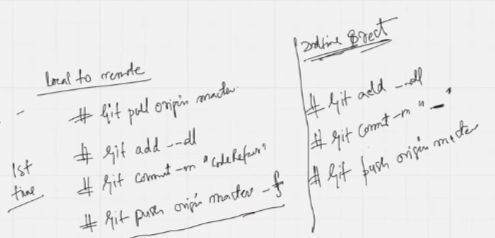 local to remote
1st
time
# Git pull origin master
# Git add --all
# Git commit -m "codeRefavr"
# Git push origin master -f
2ndtime
# Git add --all
# Git commt -m "—"
# Git push origin master